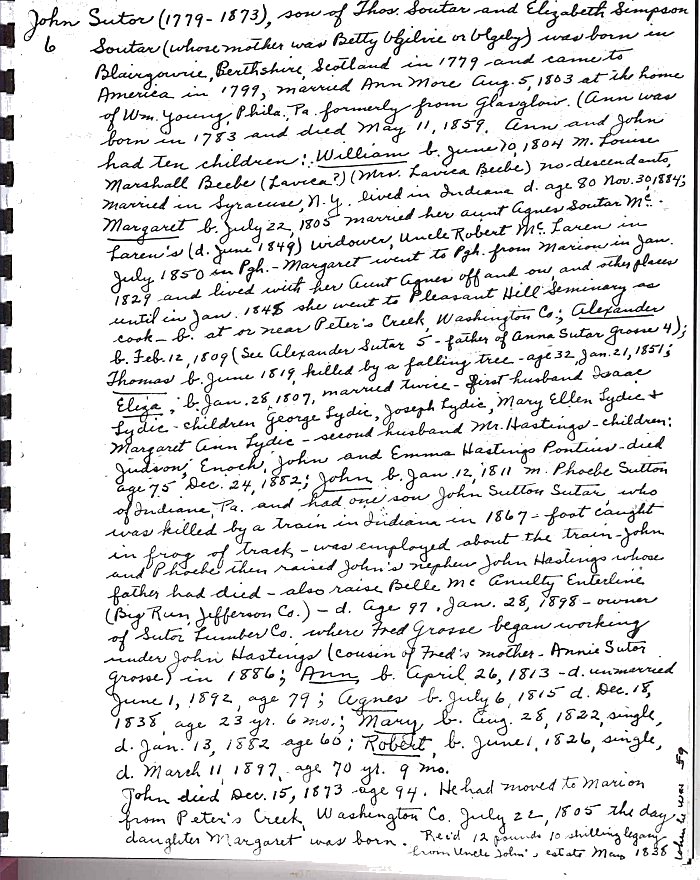 John Sutor (1779-1873), son of Thos. Soutar and Elizabeth Simpson
6 Soutar (whose mother was Betty Ogilvie or Ogelby) was born in
Blairgowrie, Perthshire, Scotland in 1779 and came to
America in 1799, married Ann More Aug. 5, 1803 at the home
of Wm. Young, Phila., Pa. formerly from Glasglow. (Ann was
born in 1783 and died May 11, 1859. Ann and John
had ten children: William b. June 10, 1804 m. Louise
Marshall Beebe (Lavica?) (Mrs. Lavica Beebe) no descendants,
married in Syracuse, N.Y. lived in Indiana d. age 80 Nov. 30, 1884;
Margaret b. July 22, 1805 married her aunt Agnes Soutar Mc.
Laren's (d. June 1849) widower, Uncle Robert Mc Laren in
July 1850 in Pgh. - Margaret went to Pgh. from Marion in Jan.
1829 and lived with her Aunt Agnes off and on and other places
until in Jan. 1848 she went to Pleasant Hill Seminary as
cook - b. at or near Peter's Creek, Washington Co; Alexander
b. Feb. 12, 1809 (See Alexander Sutor 5 - father of Anna Sutor Grosse 4);
Thomas b. June 1819, killed by a falling tree - age 32, Jan. 21, 1851;
Eliza, b. Jan. 28, 1807, married twice - first husband Isaac
Lydic - children George Lydic, Joseph Lydic, Mary Ellen Lydic &
Margaret Ann Lydic - second husband Mr. Hastings - children:
Judson, Enoch, John and Emma Hastings Pontius - died
age 75 Dec. 24, 1882; John b. Jan. 12, 1811 m. Phoebe Sutton
of Indiana, Pa. and had one son John Sutton Sutor, who
was killed by a train in Indiana in 1867 - foot caught
in frog of track - was employed about the train - John
and Phoebe then raised John's nephew John Hastings whose
father had died - also raise Belle Mc Anulty Enterline
(Big Run, Jefferson Co.) - d. Age 97, Jan. 28, 1898 - owner
of Sutor Lumber Co. where Fred Grosse began working
under John Hastings (cousin of Fred's mother - Annie Sutor
Grosse) in 1886; Ann, b. April 26, 1813 - d. unmarried
June 1, 1892, age 79; Agnes b. July 6, 1815 d. Dec. 18,
1838, age 23 yr. 6 mo.; Mary b. Aug. 28, 1822, single,
d. Jan. 13, 1882 age 60; Robert, b. June 1, 1826, single,
d. March 11, 1897, age 70 yr. 9 mo.
John died Dec. 15, 1873 age 94. He had moved to Marion
from Peter's Creek, Washington Co. July 22, 1805 the day
daughter Margaret was born. Rec'd 12 pounds 10 shilling legacy
from Uncle John's estate May 1838
when he was 59